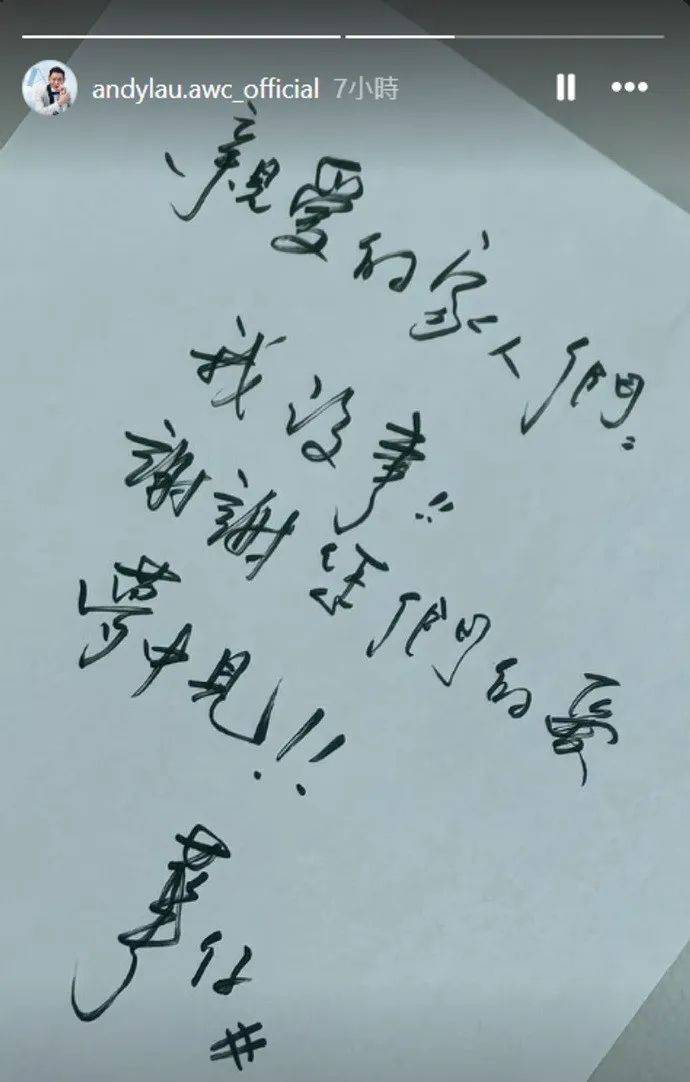 andylau.awc_official 7小時
親愛的家人們:
我沒事!!
謝謝你們的愛
夢中見!!!
華仔
#